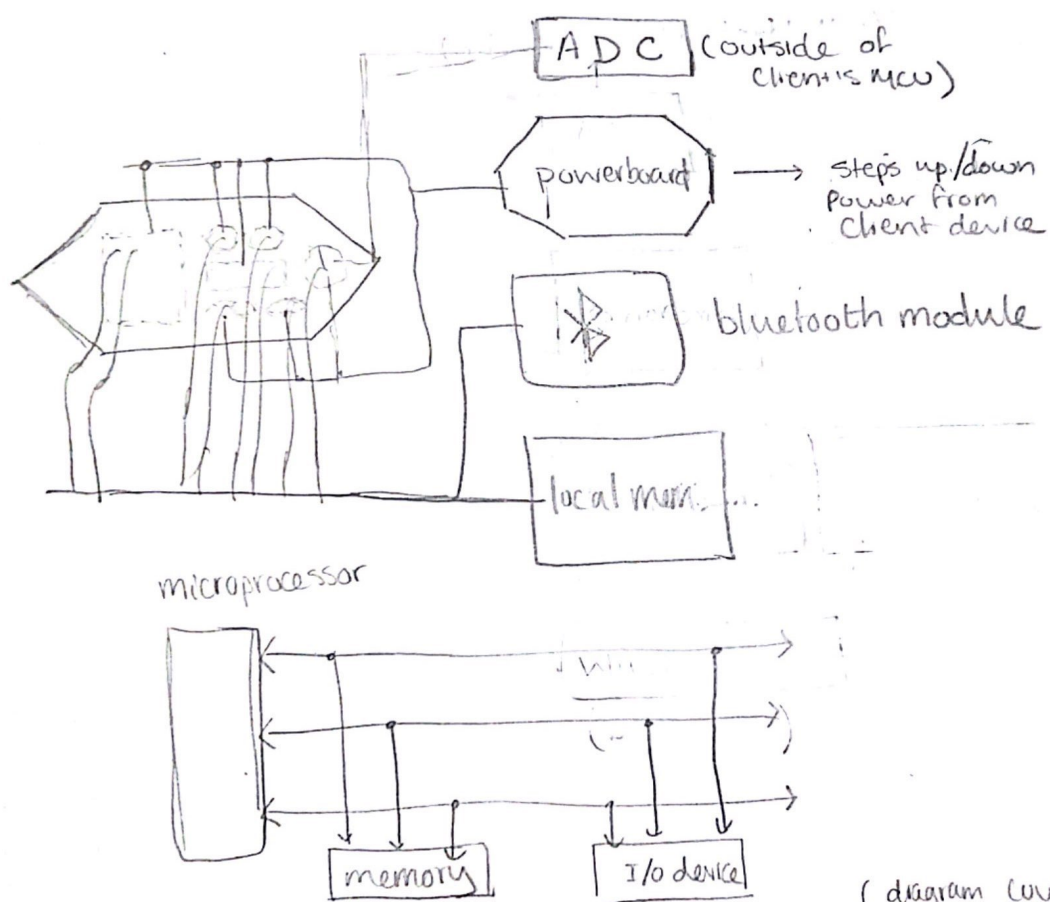 ADC (outside of
client's MCU)
powerboard
steps up/down
power from
client device
bluetooth module
local mem.
microprocessor
memory
I/o device
(diagram